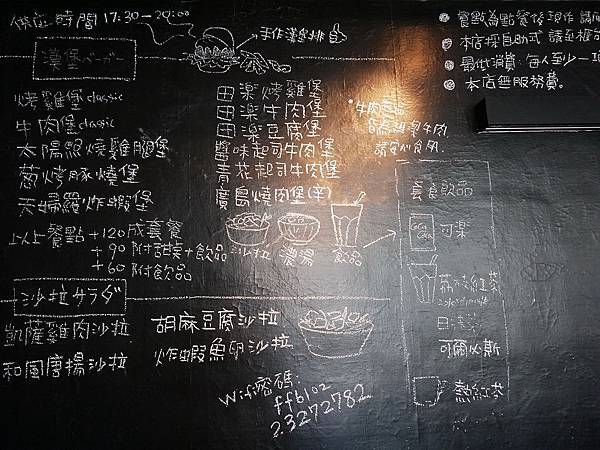 供應時間 17:30-20:00
漢堡ハンバーガー
手作漢堡排
烤雞堡 classic
牛肉堡 classic
太陽照燒雞腿堡
蔥烤豚燒堡
天婦羅炸蝦堡
以上餐點 +120 成套餐
+90 附甜点+飲品
+60 附飲品
田楽烤雞堡
田楽牛肉堡
田楽豆腐堡
醬味起司牛肉堡
青花起司牛肉堡
廣島燒肉堡(辛)
沙拉 濃湯 飲品
*牛肉產品
皆為紐澳牛肉
請安心食用
本店採自助式
最低消費:每人至少一項
本店無服務費。
套食飲品
Coca Cola
可樂
荔枝紅茶
可爾必斯
熱紅茶
沙拉サラダ
凱薩雞肉沙拉
和風唐揚沙拉
胡麻豆腐沙拉
炸蝦魚卵沙拉
Wifi密碼:
ffb102
23272782